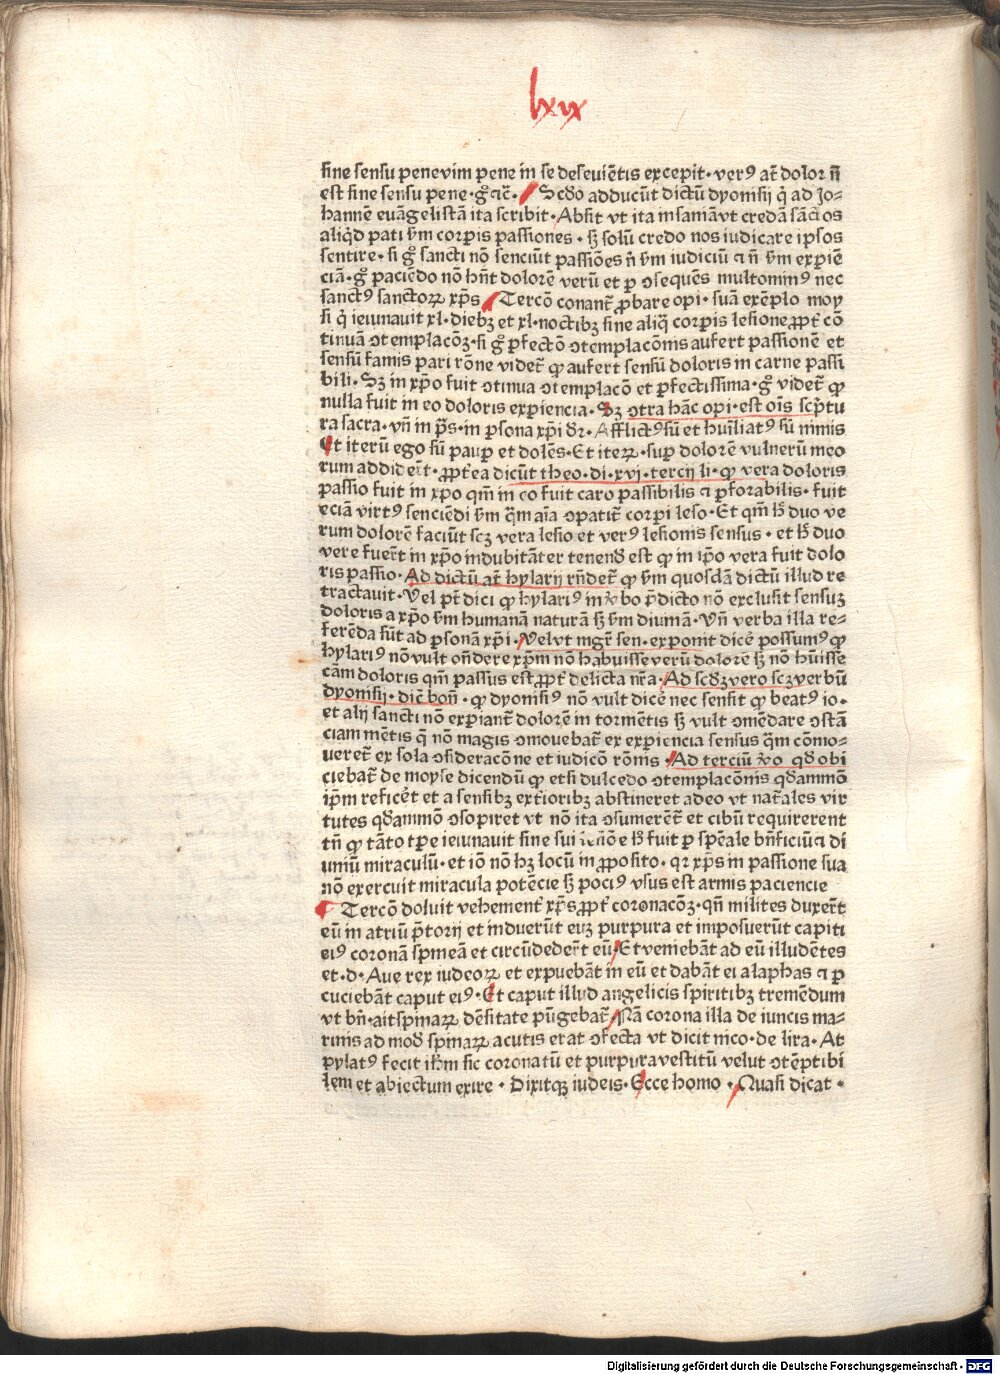 lxix
sine sensu pene vim pene in se deseuiẽtis excepit· verꝰ at̃ dolor ñ
est sine sensu pene· gͦ ⁊c̃· Scd̃o adducũt dictũ dyonisij q̃ ad Jo-
hannẽ euãgelistã ita scribit· Absit vt ita insaniã vt credã sãctos
aliqd̃ pati ẜm corꝑis passiones· sꝫ solũ credo nos iudicare ipsos
sentire· si gͦ sancti nõ senciũt passiões ñ ẜm iudiciũ ⁊ ñ ẜm exꝑiẽ
ciã· gͦ paciẽdo nõ hñt dolorẽ verũ et ꝑ ꝯsequẽs multominꝰ nec
sanctꝰ sanctoꝝ xp̃s Tercõ conant̃ ꝓbare opi· suã exẽplo moy
si q̃ ieiunauit xl· diebꝫ et xl· noctibꝫ sine aliq̃ corꝑis lesione ꝓpt̃ cõ
tinuã ꝯtemplacõꝫ· si gͦ ꝑfectõ ꝯtemplacõnis aufert passionẽ et
sensũ famis pari rõne videt̃ ꝙ aufert sensũ doloris in carne passi
bili· Sꝫ in xp̃o fuit ꝯtinua ꝯtemplacõ et ꝑfectissima· gͦ videt̃ ꝙ
nulla fuit in eo doloris exꝑiencia· Sꝫ ꝯtra hãc opi· est oĩs sc̃ptu
ra sacra· vñ in p̃s· in ꝑsona xp̃i dr̃· Afflictꝰ sũ et huĩliatꝰ sũ nimis
Et iterũ ego sũ paup̃ et dolẽs· Et iteꝝ· suꝑ dolorẽ vulnerũ meo
rum addider̃t· ꝓpt̃ea dicũt theo· di· xvj· tercij li· ꝙ vera doloris
passio fuit in xp̃o qm̃ in eo fuit caro passibilis ⁊ ꝑforabilis· fuit
eciã virtꝰ senciẽdi ẜm q̃m aĩa ꝯpatit̃ corꝑi leso· Et qm̃ h̃ duo ve
rum dolorẽ faciũt scꝫ vera lesio et verꝰ lesionis sensus· et h̃ duo
vere fuer̃t in xp̃o indubitãter tenend̃ est ꝙ in ip̃o vera fuit dolo
ris passio· Ad dictũ at̃ hylarij rñdet̃ ꝙ ẜm quosdã dictũ illud re
tractauit· Vel pt̃ dici ꝙ hylariꝰ in v̾bo p̃dicto nõ exclusit sensuꝫ
doloris a xp̃o ẜm humanã naturã sꝫ ẜm diuinã· Vñ verba illa re-
ferẽda sũt ad ꝑsonã xp̃i· Velut mgr̃ sen· exponit dicẽ possumꝰ ꝙ
hylariꝰ nõ vult oñdere xp̃m nõ habuisse verũ dolorẽ sꝫ nõ hũisse
cãm doloris qm̃ passus est ꝓpt̃ delicta nr̃a· Ad scd̃ꝫ vero scꝫ verbũ
dyonisij· dic̃ boñ· ꝙ dyonisiꝰ nõ vult dicẽ nec sensit ꝙ beatꝰ io·
et alij sancti nõ exꝑiant̃ dolorẽ in tormẽtis sꝫ vult ꝯmẽdare ꝯstã
ciam mẽtis q̃ nõ magis ꝯmouebat̃ ex exꝑiencia sensus q̃m cõmo-
ueret̃ ex sola ꝯsideracõne et iudicõ rõnis· Ad terciũ v̾o qd̃ obi
ciebat̃ de moyse dicendũ ꝙ etsi dulcedo ꝯtemplacõnis qd̃ammõ
ip̃m reficẽt et a sensibꝫ ext̃ioribꝫ abstineret adeo vt nat̃ales vir
tutes qd̃ammõ ꝯsopiret vt nõ ita ꝯsumerẽt̃ et cibũ requirerent
tñ ꝙ tãto tꝑe ieiunauit sine sui h̃ fuit ꝑ sp̃eale bñficiũ ⁊ di
uinũ miraculũ· et iõ nõ hꝫ locũ in ꝓposito· qꝛ xp̃s in passione sua
nõ exercuit miracula potẽcie sꝫ pociꝰ vsus est armis paciencie
Tercõ doluit vehement̃ xp̃s ꝓpt̃ coronacõꝫ· qñ milites duxer̃t
eũ in atriũ p̃torij et induerũt euꝫ purpura et imposuerũt capiti
eiꝰ coronã spineã et circũdeder̃t eũ· Et veniebãt ad eũ illudẽtes
et· d· Aue rex iudeoꝝ et expuebãt in eũ et dabãt ei alaphas ⁊ ꝑ
cuciebãt caput eiꝰ· Et caput illud angelicis spiritibꝫ tremẽdum
vt bñ· ait spinaꝝ dẽsitate pũgebat̃· Nã corona illa de iuncis ma-
rinis ad mod̃ spinaꝝ acutis erat ꝯfecta vt dicit nico· de lira· At
pylatꝰ fecit ih̃m sic coronatũ et purpura vestitũ velut ꝯtẽptibi
lem et abiectum exire· Dixitqꝫ iudeis· Ecce homo· Quasi dicat·
Digitalisierung gefördert durch die Deutsche Forschungsgemeinschaft - DFG